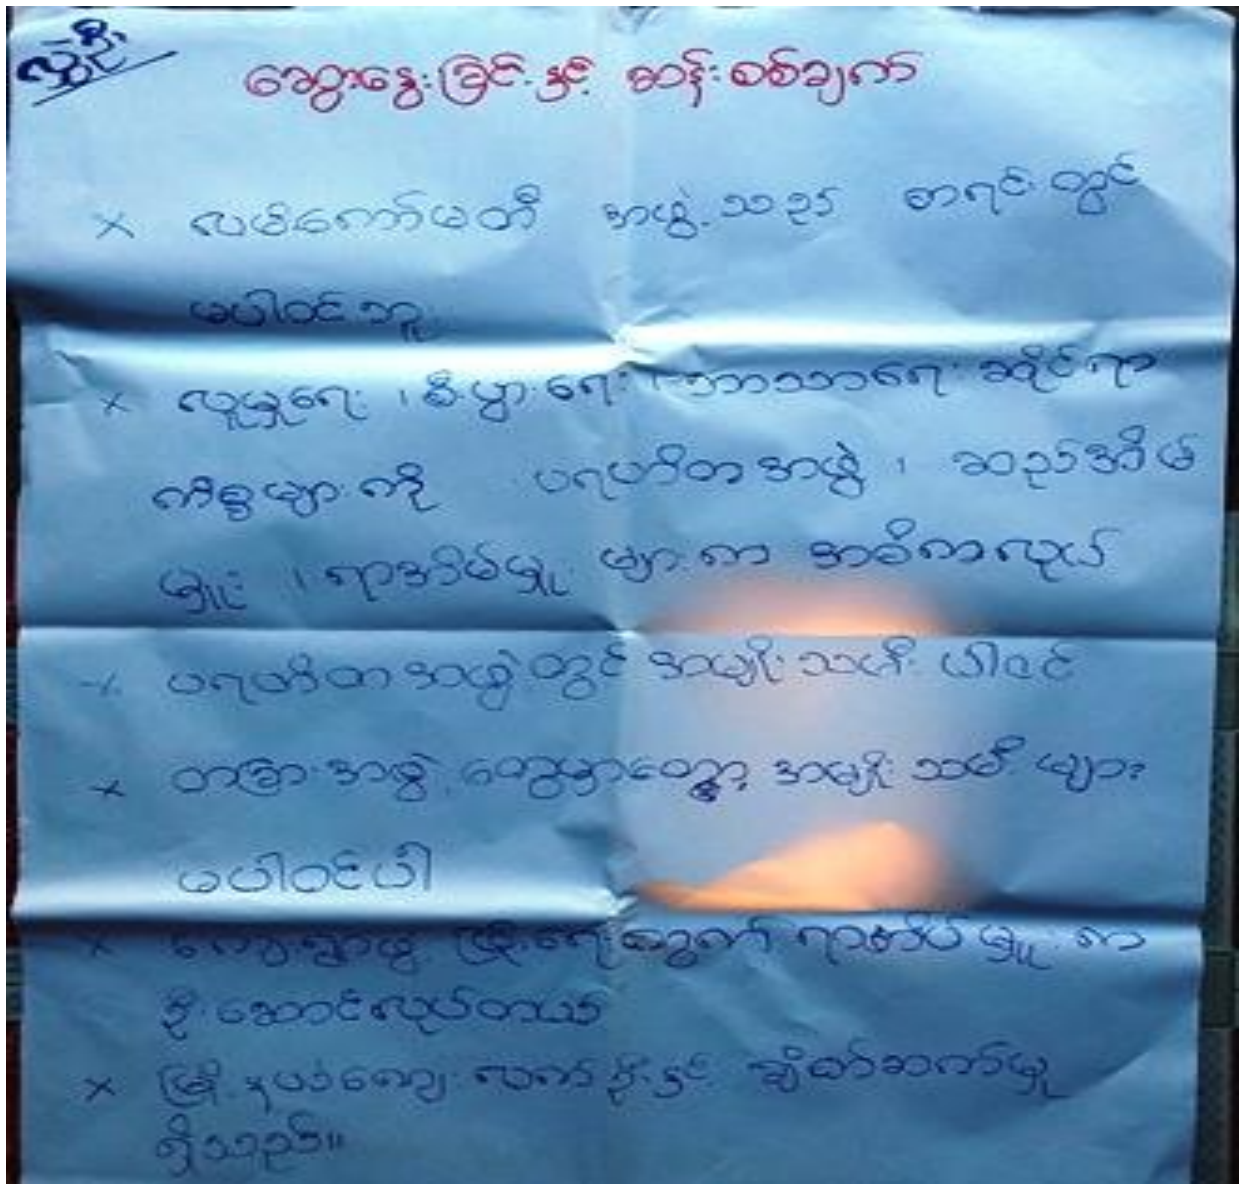 လွှဦး
ဆွေးနွေးခြင်းနှင့် ဆန်းစစ်ချက်
× လမ်းကော်မတီ အဖွဲ့သည် စာရင်းတွင်
မပါဝင်ဘူး
× လူမှုရေး ၊ စီးပွားရေး ၊ ဘာသာရေး ဆိုင်ရာ
ကိစ္စများကို ပရဟိတအဖွဲ့ ၊ ဆည်အိမ်
မှူး ၊ ရာအိမ်မှူး များက အဓိကလုပ်
× ပရဟိတအဖွဲ့တွင် အမျိုးသမီး ပါဝင်
× တခြားအဖွဲ့ တွေမှာတော့ အမျိုးသမီး များ
မပါဝင်ပါ
× ကျေးရွာဖွံ့ဖြိုးရေးအတွက် ရာအိမ်မှူး က
ဦးဆောင်လုပ်တယ်
× မြို့နယ်ကျေးလက်ဦးနှင့် ချိတ်ဆက်မှု
ရှိသည်။